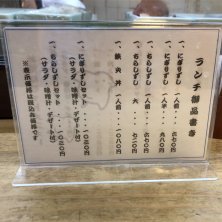 ランチ御品書き
一、にぎりずし 一人前 … 六七〇円
一、にぎりずし 一人半 … 九八〇円
一、ちらしずし 一人前 … 六七〇円
一、ちらしずし 大 … 七二〇円
一、鉄火丼 一人前 … 一〇八〇円
一、にぎりずしセット … 一〇二〇円
(サラダ・味噌汁・デザート付)
一、ちらしずしセット … 一〇二〇円
(サラダ・味噌汁・デザート付)
※表示価格は税込み価格です